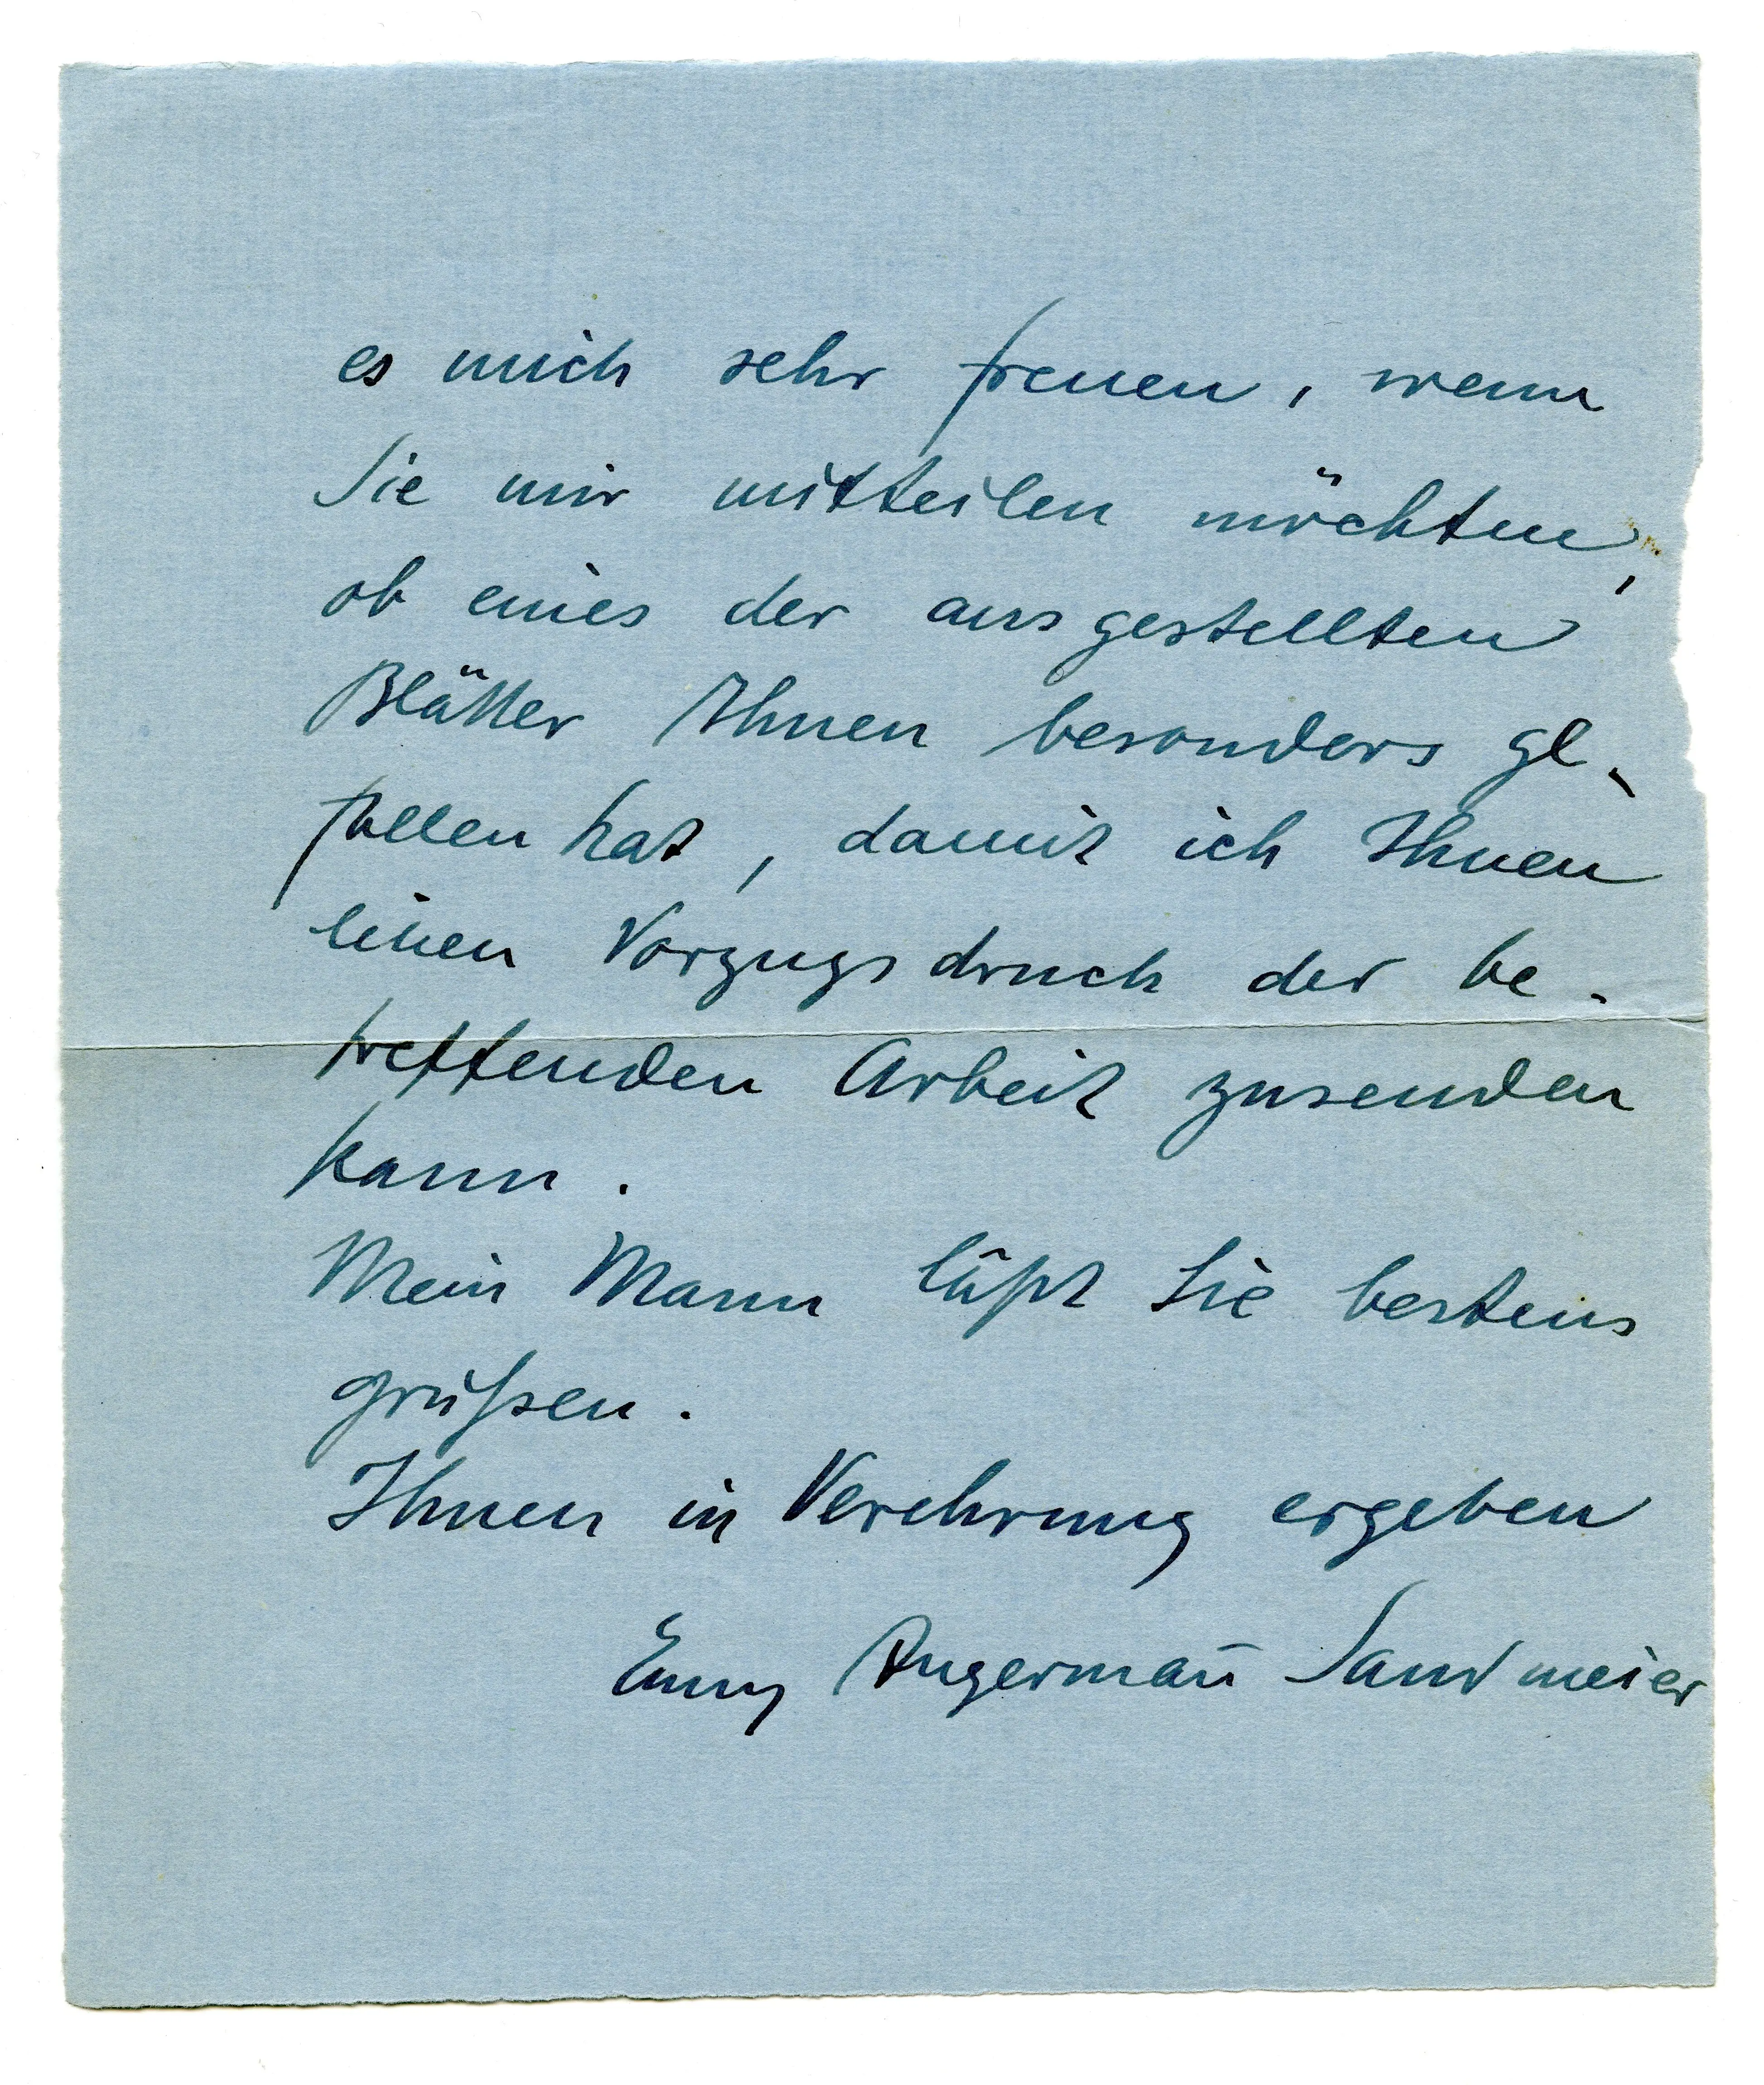 es mich sehr freuen, wenn
Sie mir mitteilen möchten,
ob eines der ausgestellten
Blätter Ihnen besonders ge-
fallen hat, damit ich Ihnen
einen Vorzugsdruck der be-
treffenden Arbeit zusenden
kann.
Mein Mann läßt Sie bestens
grüßen.
Ihnen in Verehrung ergeben
Emmy Angermañ Sandmeier